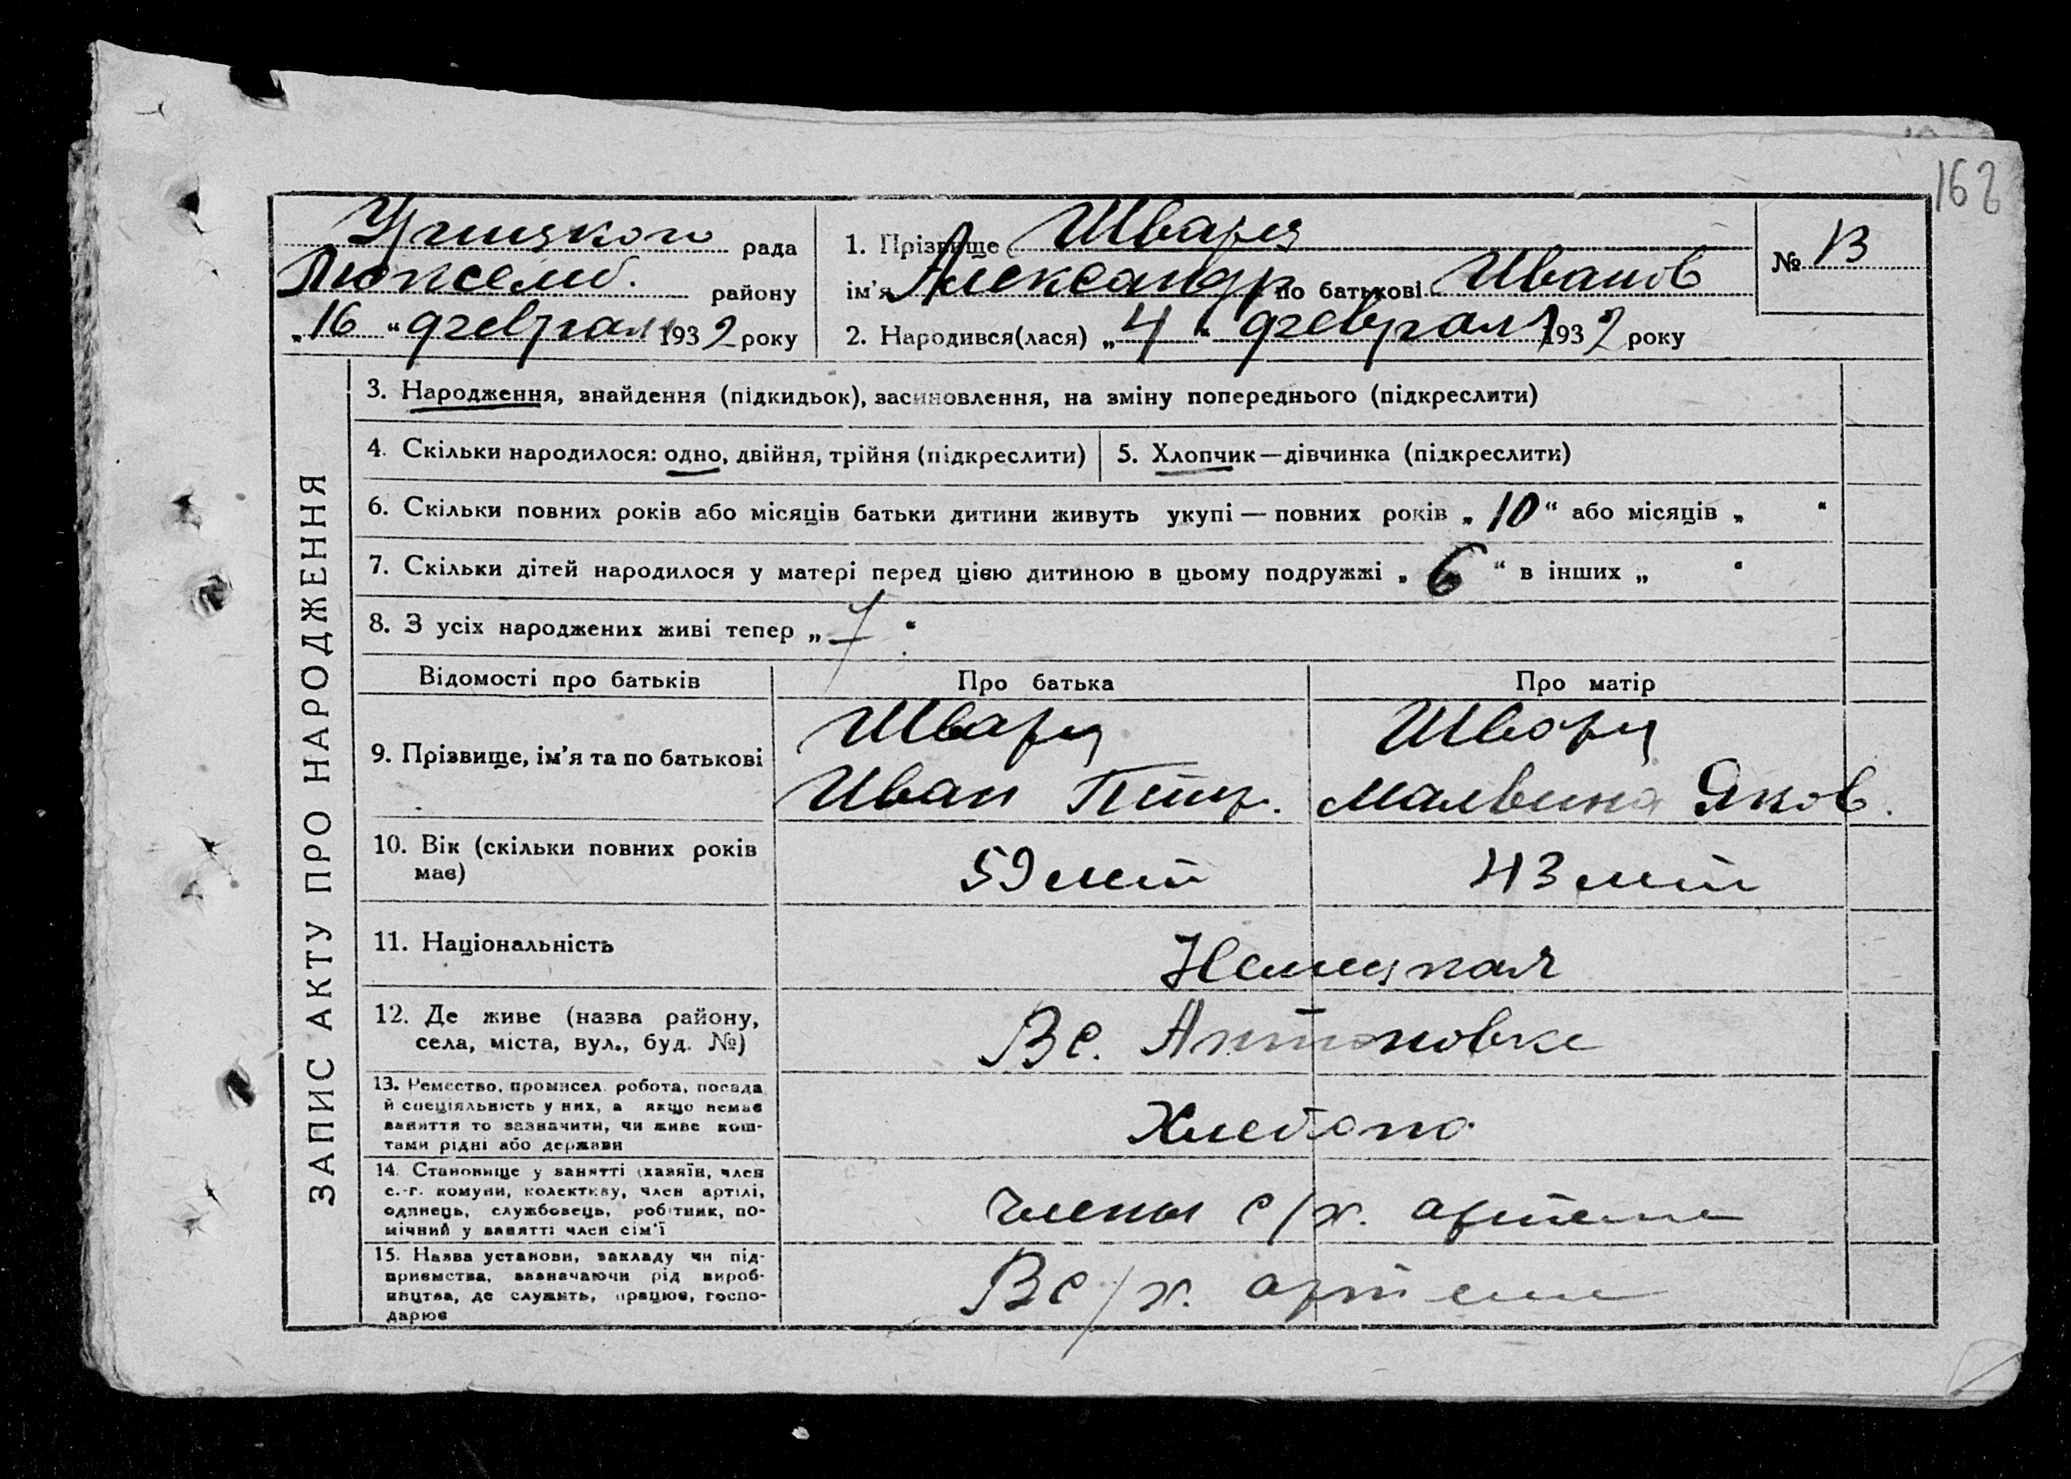 162
рада
Люксемб. району
„16 “ февраля 1932 року
1. Прізвище Шварц
ім’я Александр по батькові Иванов
2. Народився(лася) „4 “ февраля 1932 року
№ 13
ЗАПИС АКТУ ПРО НАРОДЖЕННЯ
3. Народження, знайдення (підкидьок), засиновлення, на зміну попереднього (підкреслити)
4. Скільки народилося: одно, двійня, трійня (підкреслити) 5. Хлопчик—дівчинка (підкреслити)
6. Скільки повних років або місяців батьки дитини живуть укупі — повних років „10“ або місяців „ “
7. Скільки дітей народилося у матері перед цією дитиною в цьому подружжі „6“ в інших „ “
8. З усіх народжених живі тепер „7“
Відомості про батьків Про батька Про матір
9. Прізвище, ім’я та по батькові
Шварц
Иван Петр.
Шварц
Мальвина Яков.
10. Вік (скільки повних років
має)
59 лет
43 лет
11. Національність
Немецкая
12. Де живе (назва району,
села, міста, вул., буд. №)
В с. Антоновке
13. Ремество, промисел, робота, посада
й спеціяльність у них, а якщо немає
заняття то зазначити, чи живе кош-
тами рідні або держави
Хлебопа
14. Становище у занятті (хазяїн, член
с.-г. комуни, колективу, член артілі,
одинець, службовець, робітник, по-
мічний у занятті член сім’ї
члены с/х. артели
15. Назва установи, закладу чи під-
приємства, зазначаючи рід вироб-
ництва, де служить, працює, госпо-
дарює
В с/х. артели